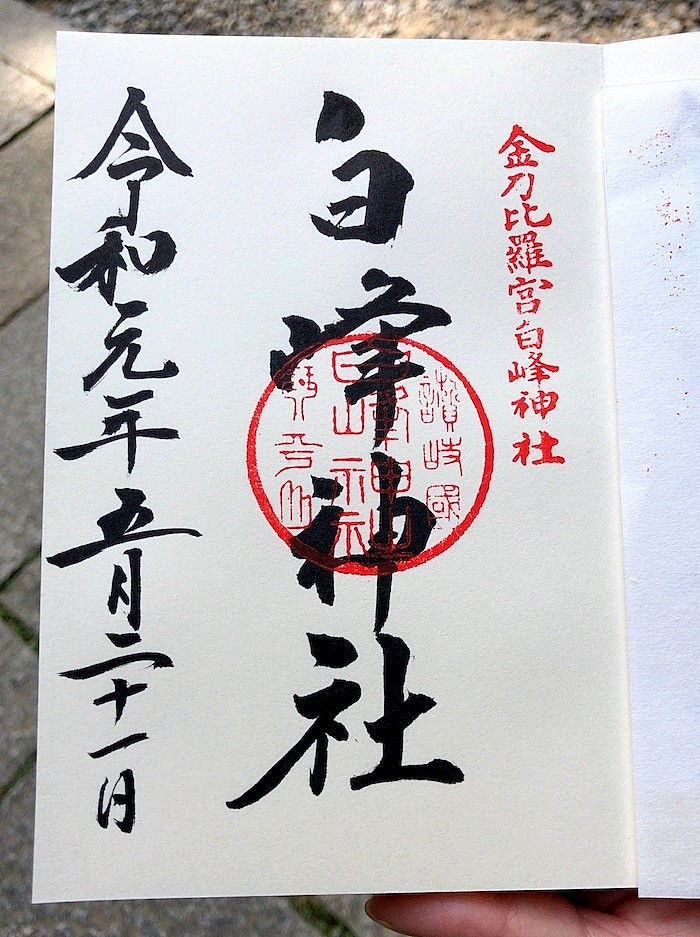 金刀比羅宮白峰神社
白峰神社
讃岐國
白峰神社
琴平山
令和元年五月二十一日